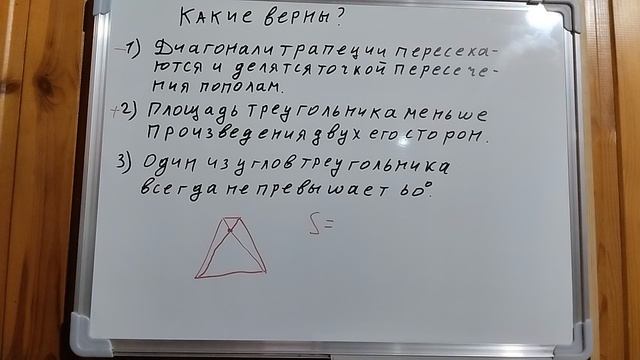 Какие верны?
-1) Диагонали трапеции пересека-
ются и делятся точкой пересече-
ния пополам.
+2) Площадь треугольника меньше
произведения двух его сторон.
3) Один из углов треугольника
всегда не превышает 60°.
S=